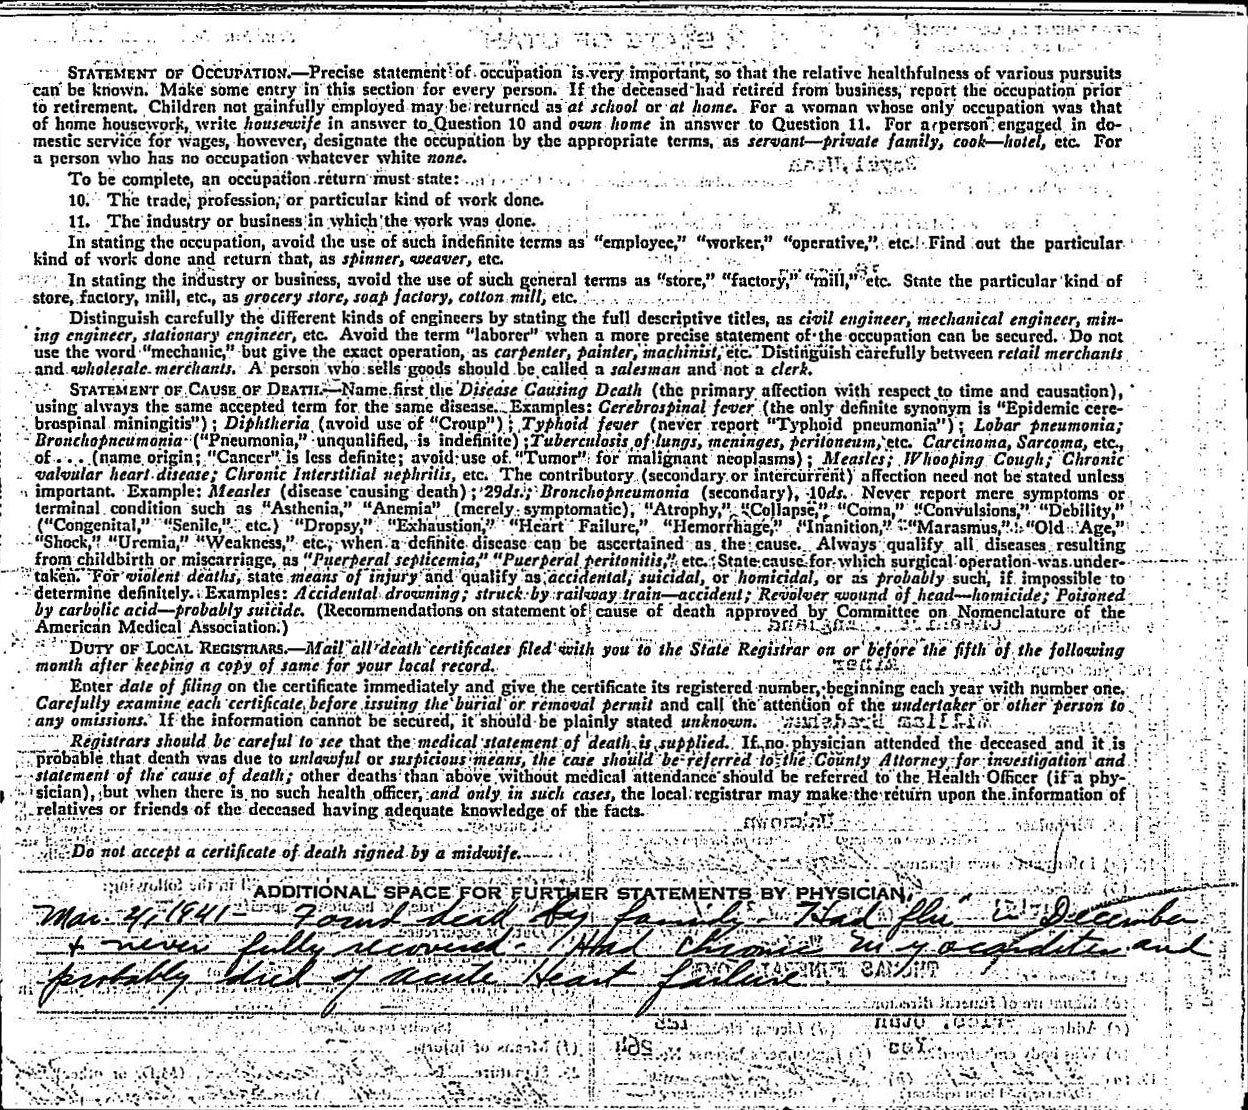 STATEMENT OF OCCUPATION.—Precise statement of occupation is very important, so that the relative healthfulness of various pursuits
can be known. Make some entry in this section for every person. If the deceased had retired from business, report the occupation prior
to retirement. Children not gainfully employed may be returned as at school or at home. For a woman whose only occupation was that
of home housework, write housewife in answer to Question 10 and own home in answer to Question 11. For a person engaged in do-
mestic service for wages, however, designate the occupation by the appropriate terms, as servant—private family, cook—hotel, etc. For
a person who has no occupation whatever white none.
To be complete, an occupation return must state:
10. The trade, profession, or particular kind of work done.
11. The industry or business in which the work was done.
In stating the occupation, avoid the use of such indefinite terms as "employee," "worker," "operative," etc. Find out the particular
kind of work done and return that, as spinner, weaver, etc.
In stating the industry or business, avoid the use of such general terms as "store," "factory," "mill," etc. State the particular kind of
store, factory, mill, etc., as grocery store, soap factory, cotton mill, etc.
Distinguish carefully the different kinds of engineers by stating the full descriptive titles, as civil engineer, mechanical engineer, min-
ing engineer, stationary engineer, etc. Avoid the term "laborer" when a more precise statement of the occupation can be secured. Do not
use the word "mechanic," but give the exact operation, as carpenter, painter, machinist, etc. Distinguish carefully between retail merchants
and wholesale merchants. A person who sells goods should be called a salesman and not a clerk.
STATEMENT OF CAUSE OF DEATH.—Name first the Disease Causing Death (the primary affection with respect to time and causation),
using always the same accepted term for the same disease. Examples: Cerebrospinal fever (the only definite synonym is "Epidemic cere-
brospinal miningitis"); Diphtheria (avoid use of "Croup"); Typhoid fever (never report "Typhoid pneumonia"); Lobar pneumonia;
Bronchopneumonia ("Pneumonia," unqualified, is indefinite); Tuberculosis of lungs, meninges, peritoneum, etc. Carcinoma, Sarcoma, etc.,
of .... (name origin; "Cancer" is less definite; avoid use of "Tumor" for malignant neoplasms); Measles; Whooping Cough; Chronic
valvular heart disease; Chronic Interstitial nephritis, etc. The contributory (secondary or intercurrent) affection need not be stated unless
important. Example: Measles (disease causing death); 29ds.; Bronchopneumonia (secondary), 10ds. Never report mere symptoms or
terminal condition such as "Asthenia," "Anemia" (merely symptomatic), "Atrophy," "Collapse," "Coma," "Convulsions," "Debility,"
("Congenital," "Senile," etc.) "Dropsy," "Exhaustion," "Heart Failure," "Hemorrhage," "Inanition," "Marasmus," "Old Age,"
"Shock," "Uremia," "Weakness," etc., when a definite disease can be ascertained as the cause. Always qualify all diseases resulting
from childbirth or miscarriage, as "Puerperal septicemia," "Puerperal peritonitis," etc. State cause for which surgical operation was under-
taken. For violent deaths, state means of injury and qualify as accidental, suicidal, or homicidal, or as probably such, if impossible to
determine definitely. Examples: Accidental drowning; struck by railway train—accident; Revolver wound of head—homicide; Poisoned
by carbolic acid—probably suicide. (Recommendations on statement of cause of death approved by Committee on Nomenclature of the
American Medical Association.)
DUTY OF LOCAL REGISTRARS.—Mail all death certificates filed with you to the State Registrar on or before the fifth of the following
month after keeping a copy of same for your local record.
Enter date of filing on the certificate immediately and give the certificate its registered number, beginning each year with number one.
Carefully examine each certificate before issuing the burial or removal permit and call the attention of the undertaker or other person to
any omissions. If the information cannot be secured, it should be plainly stated unknown.
Registrars should be careful to see that the medical statement of death is supplied. If no physician attended the deceased and it is
probable that death was due to unlawful or suspicious means, the case should be referred to the County Attorney for investigation and
statement of the cause of death; other deaths than above without medical attendance should be referred to the Health Officer (if a phy-
sician), but when there is no such health officer, and only in such cases, the local registrar may make the return upon the information of
relatives or friends of the deceased having adequate knowledge of the facts.
Do not accept a certificate of death signed by a midwife.
ADDITIONAL SPACE FOR FURTHER STATEMENTS BY PHYSICIAN
Mar. 21, 1941 - Found dead by family - "Had flu" in December
& never fully recovered - Had chronic myocarditis and
probably died of acute Heart failure